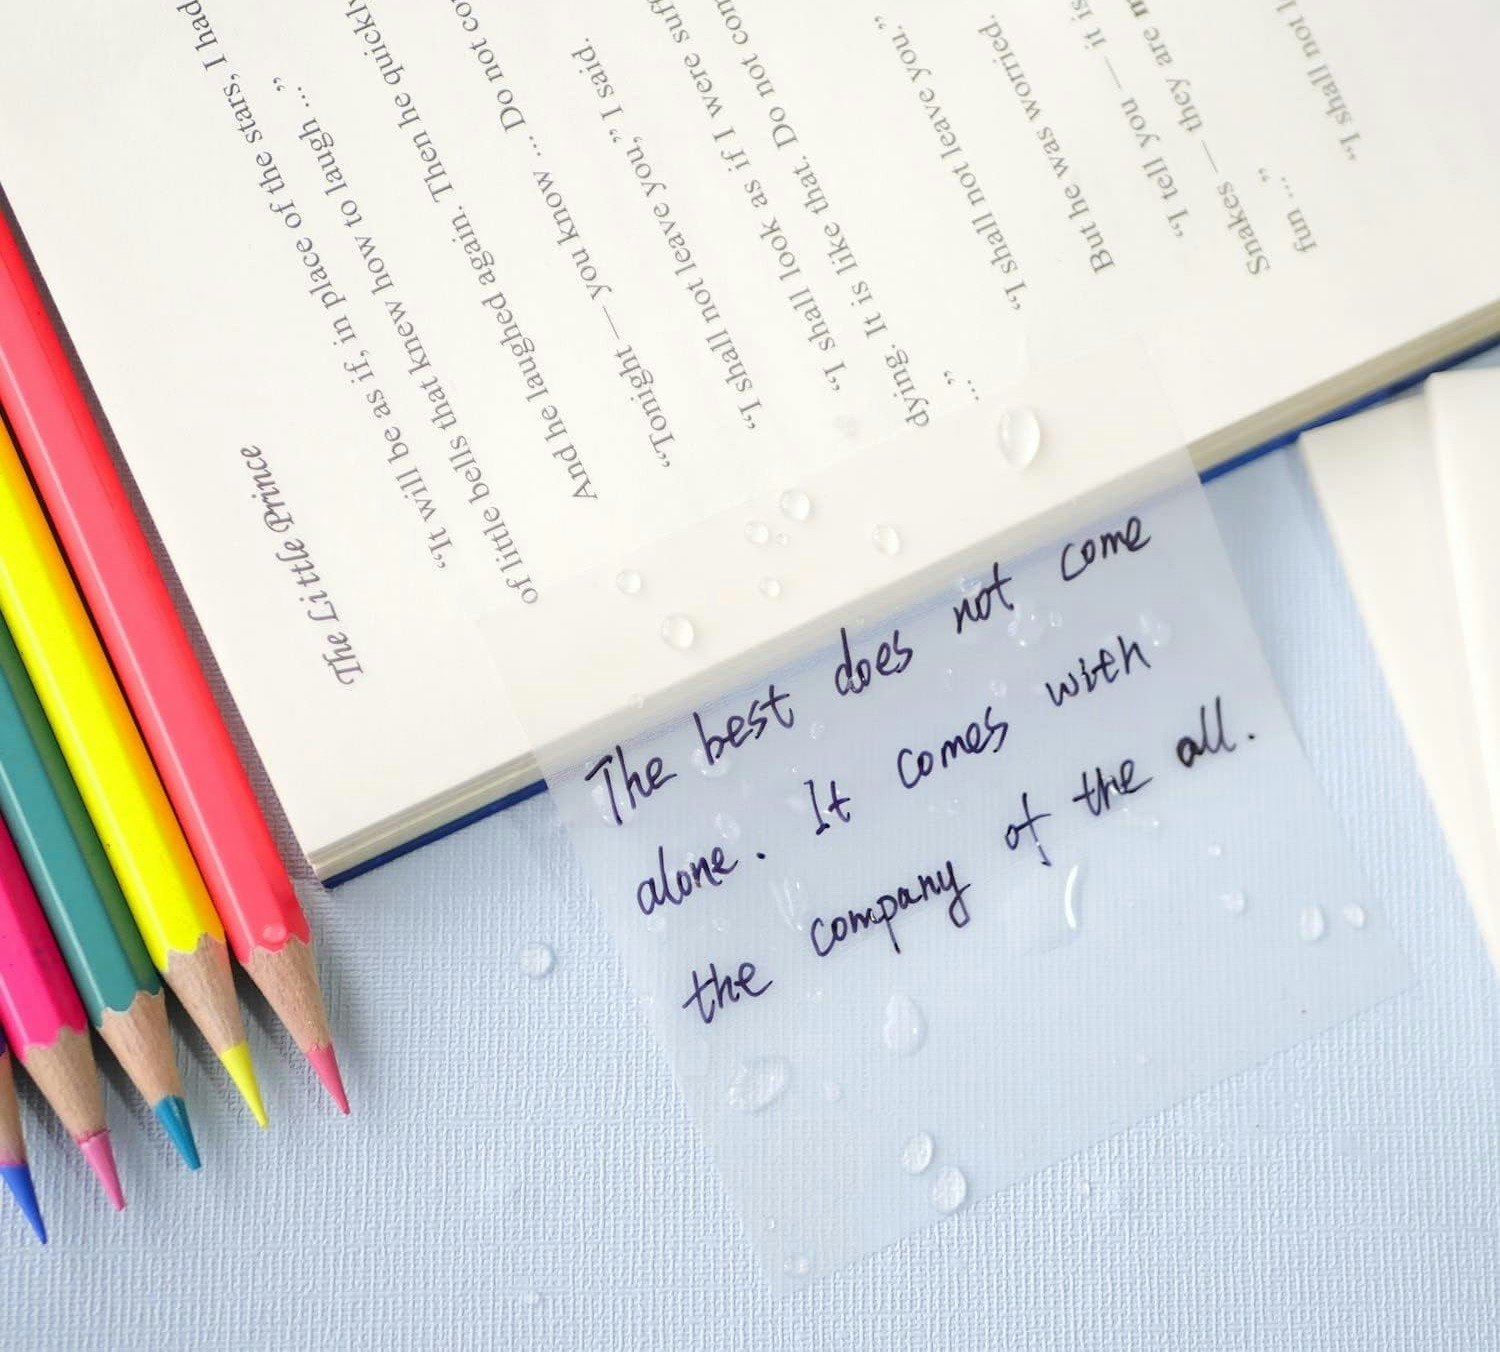 The Little Prince
“It will be as if, in place of the stars, I had
of little bells that knew how to laugh ...”
And he laughed again. Then he quickly
“Tonight — you know ... Do not co
“I shall not leave you,” I said.
“I shall look as if I were suff
dying. It is like that. Do not com
...”
“I shall not leave you.”
But he was worried.
“I tell you — it is
Snakes — they are m
fun ...”
“I shall not l
The best does not come
alone. It comes with
the company of the all.